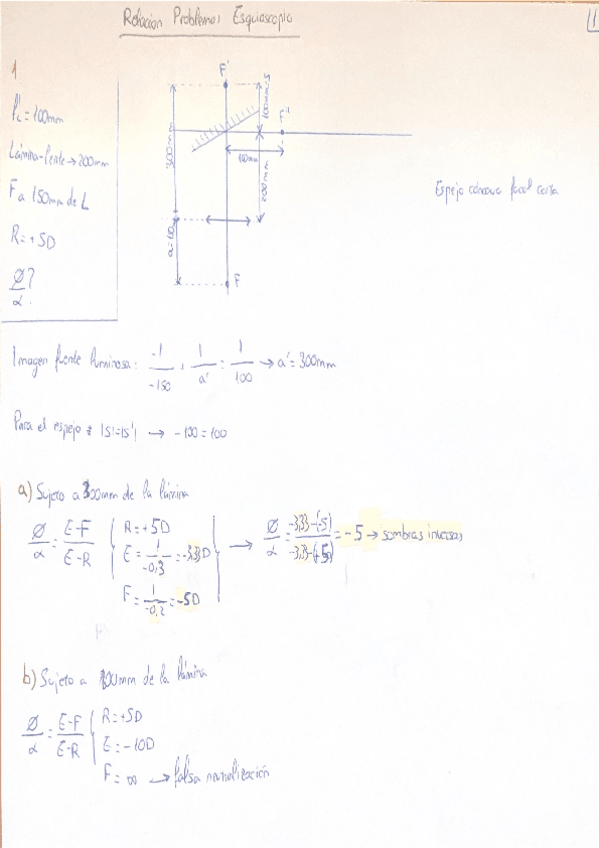 Relación Problemas Esquiascopio
1
1
f'L = 100mm
Lámina-lente → 200mm
F a 150mm de L
R = +5D
Ø/α ?
F'
F''
300mm
100mm
100mm
200mm
F
Espejo cóncavo focal corta
Imagen fuente luminosa: -1/-150 + 1/a' = 1/100 → a' = 300mm
Para el espejo: |s|=|s'| → -100 = 100
a) Sujeto a 300mm de la lámina
Ø/α = E-F/E-R
R = +5D
E = 1/-0,3 = -3,33D
F = 1/-0,2 = -5D
→ Ø/α = -3,33-(-5)/-3,33-(+5) = -5 → sombras inversas
b) Sujeto a 100mm de la lámina
Ø/α = E-F/E-R
R = +5D
E = -10D
F = ∞ → falsa neutralización